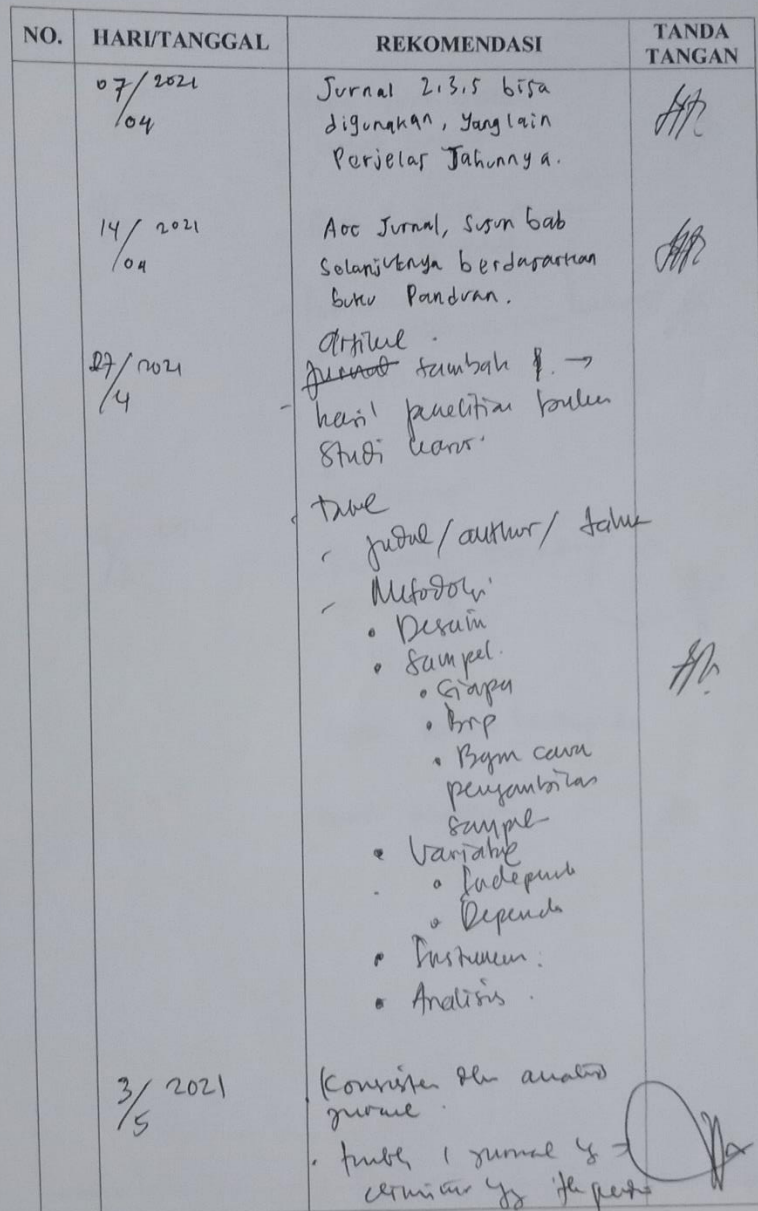 NO. HARI/TANGGAL REKOMENDASI TANDA TANGAN
07/04 2021 Jurnal 2,3,5 bisa
digunakan, yang lain
Perjelas Tahunnya.
14/04 2021 Acc Jurnal, Susun bab
Selanjutnya berdasarkan
buku Panduan.
27/4 2021 artikel
jurnal tambah 1 →
- hasil penelitian bukan
Studi kasus.
Tabel
- judul/author/tahun
- Metodologi
• Desain
• Sampel.
• Siapa
• Brp
• Bgm cara
pengambilan
sampel
• Variable
• Independ
• Depende
• Instrumen.
• Analisis.
3/5 2021 Konsisten dlm analisis
jurnal.
. 1 jurnal y